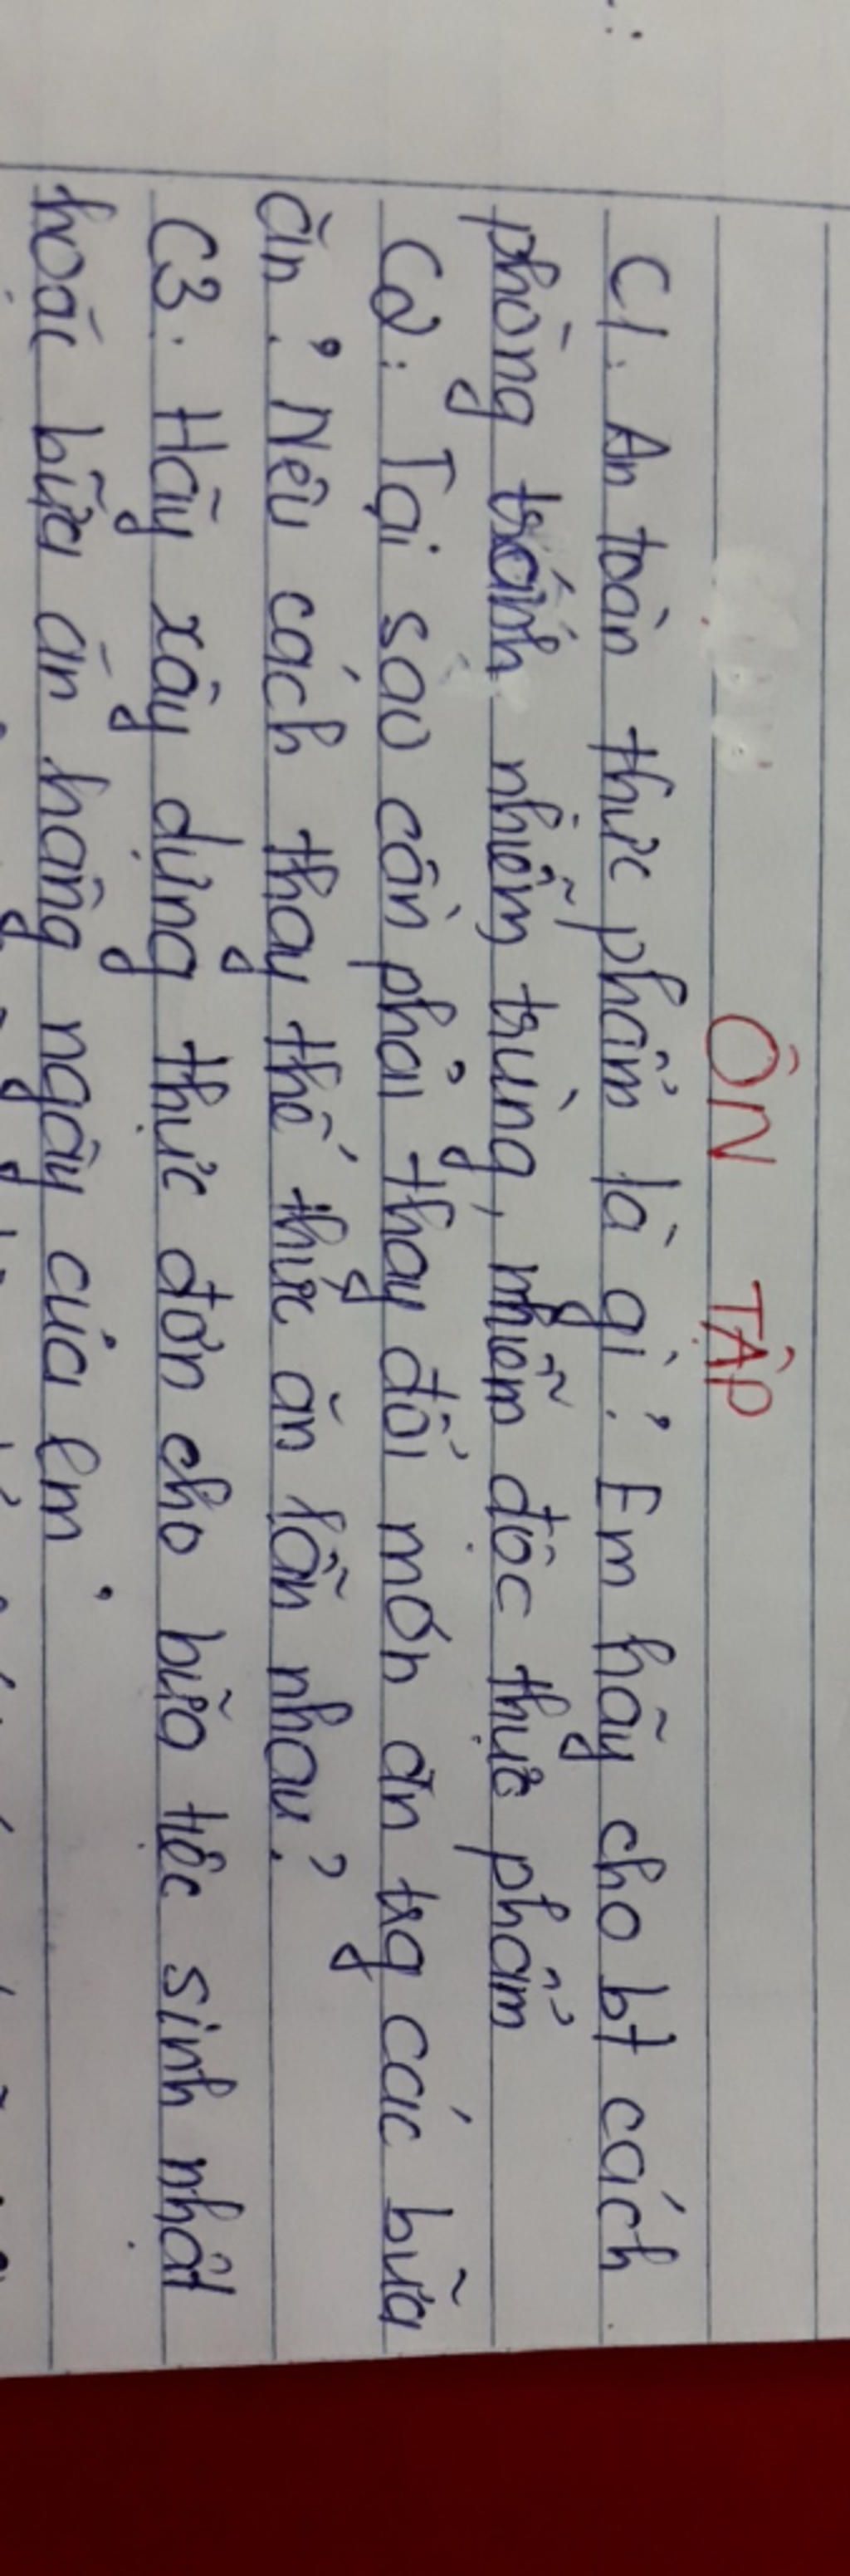 ÔN TẬP
C1. An toàn thực phẩm là gì? Em hãy cho bt cách
phòng tránh nhiễm trùng, nhiễm độc thực phẩm
C2: Tại sao cần phải thay đổi món ăn trg các bữa
ăn? Nêu cách thay thế thức ăn lẫn nhau?
C3. Hãy xây dựng thực đơn cho bữa tiệc sinh nhật
hoặc bữa ăn hàng ngày của em